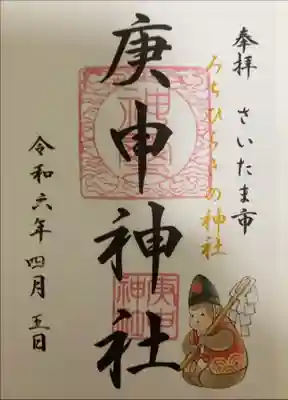 奉拝 さいたま市
みちひらきの神社
庚申神社
庚申
神社
令和六年 四月 五日